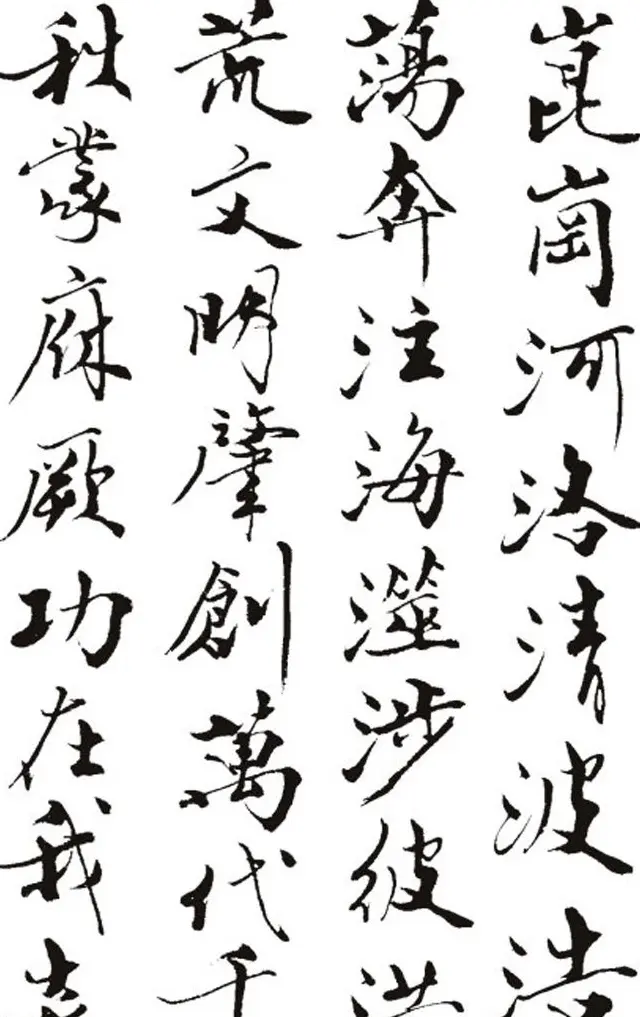 崑崗河洛清波浩
蕩奔注海澨涉彼洪
荒文明肇創萬代千
秋蒙庥厥功在我